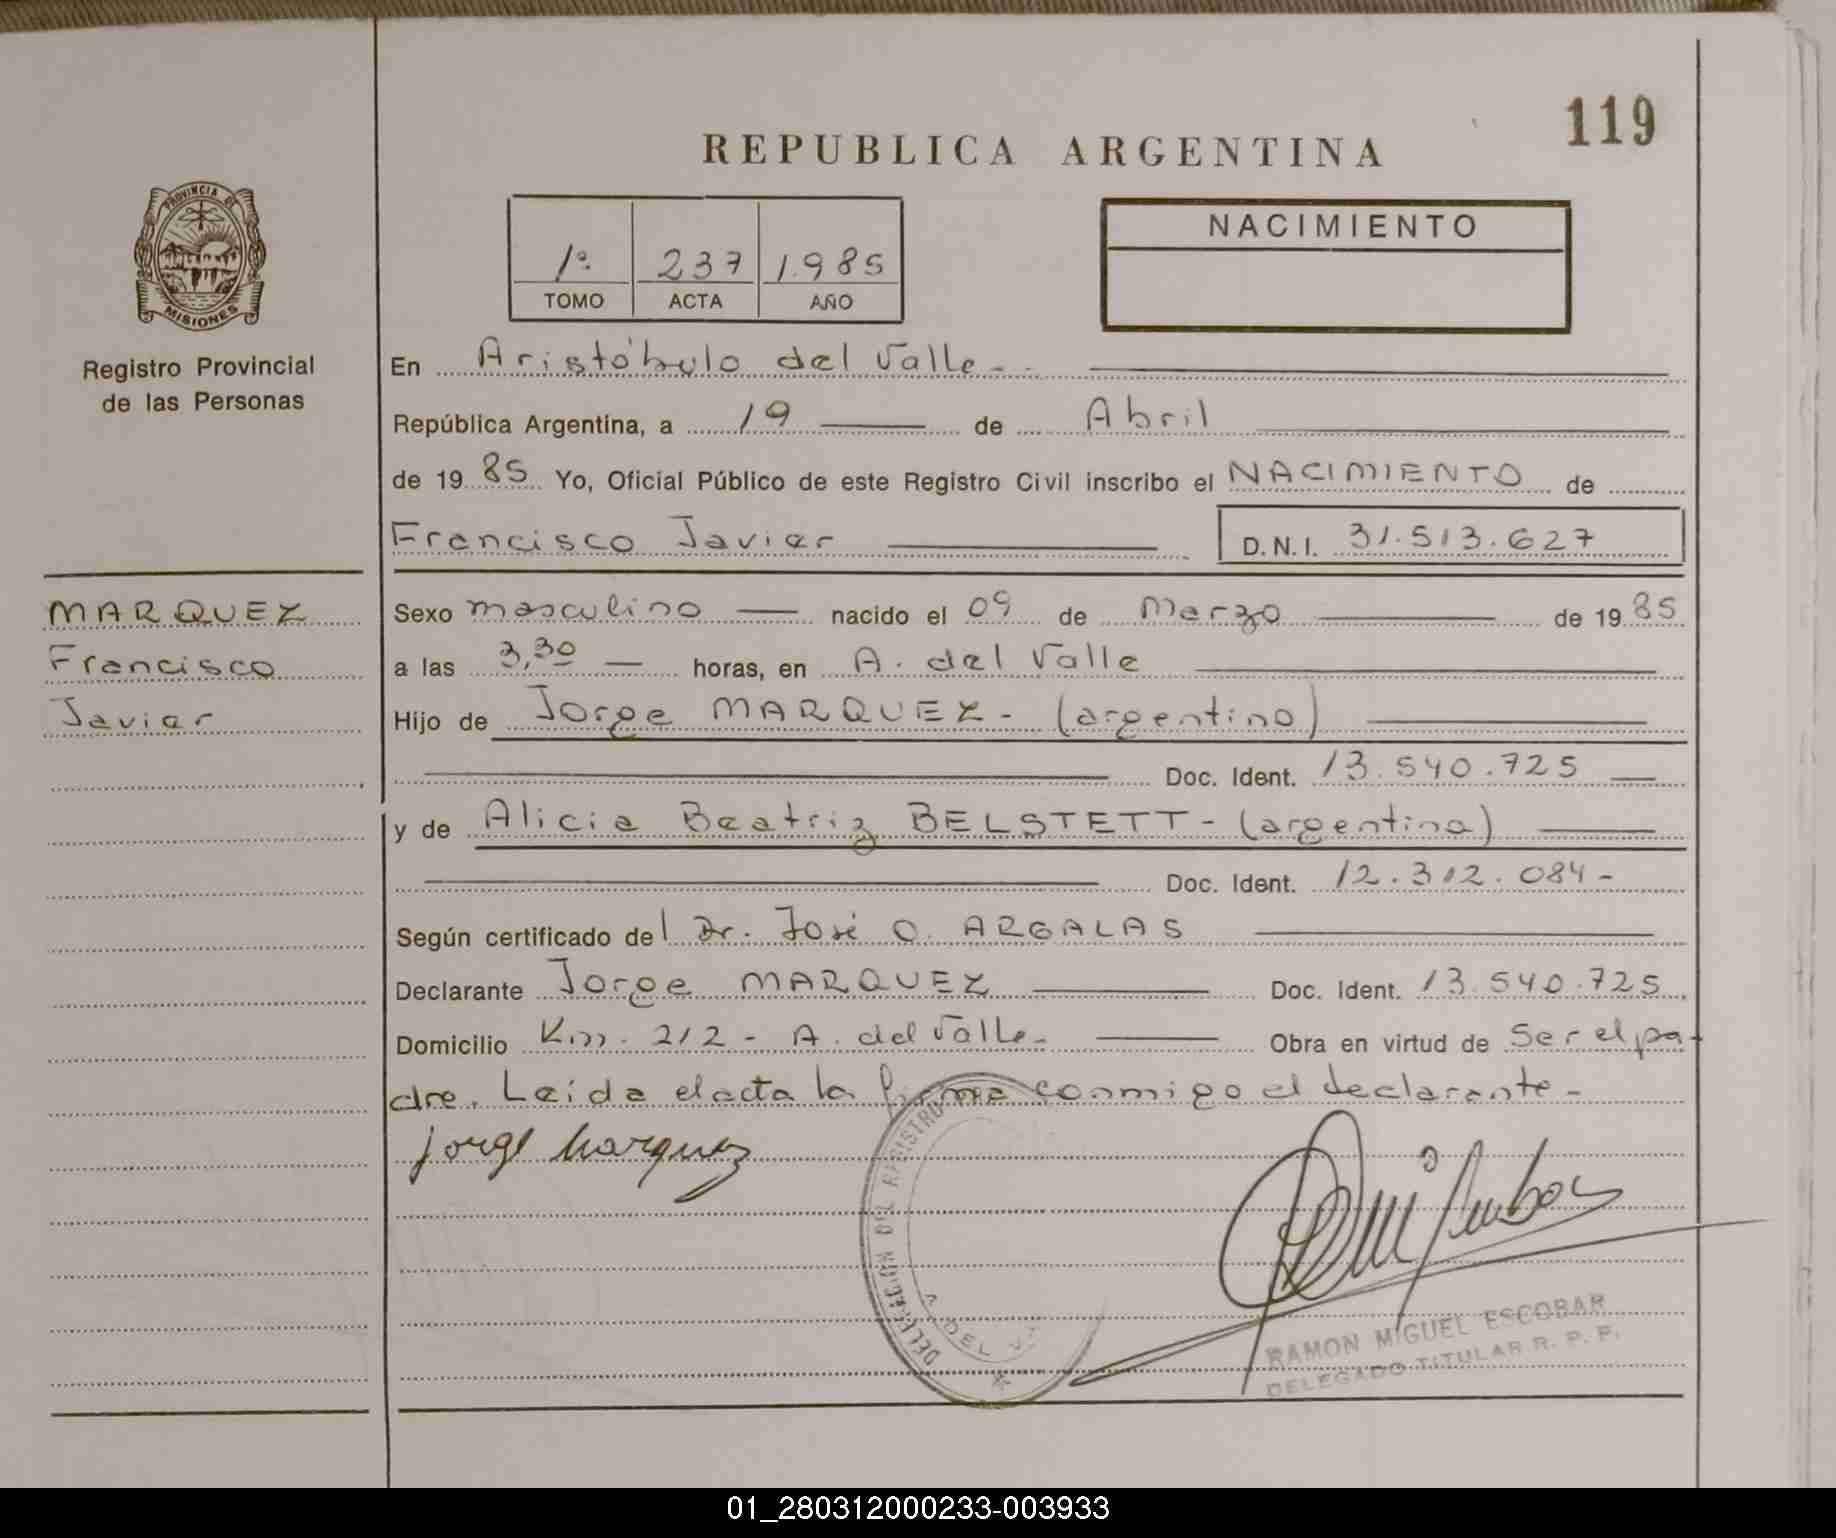 119
REPUBLICA ARGENTINA
PROVINCIA DE
MISIONES
Registro Provincial
de las Personas
1º 237 1.985
TOMO ACTA AÑO
NACIMIENTO
En Aristóbulo del Valle - -
República Argentina, a 19 de Abril
de 19 85 Yo, Oficial Público de este Registro Civil inscribo el NACIMIENTO de
Francisco Javier D.N.I. 31.513.627
MARQUEZ
Francisco
Javier
Sexo masculino nacido el 09 de Marzo de 19 85
a las 3,30 horas, en A. del Valle
Hijo de Jorge MARQUEZ - (argentino)
Doc. Ident. 13.540.725
y de Alicia Beatriz BELSTETT - (argentina)
Doc. Ident. 12.312.084 -
Según certificado del Dr. José O. ARGALAS
Declarante Jorge MARQUEZ Doc. Ident. 13.540.725
Domicilio Km. 212 - A. del Valle - Obra en virtud de Ser el pa-
dre. Leída el acta la firma conmigo el declarante -
Jorge Marquez
DELEGACION DEL REGISTRO
A. DEL VA
RAMON MIGUEL ESCOBAR
DELEGADO TITULAR R. P. P.
01_280312000233-003933